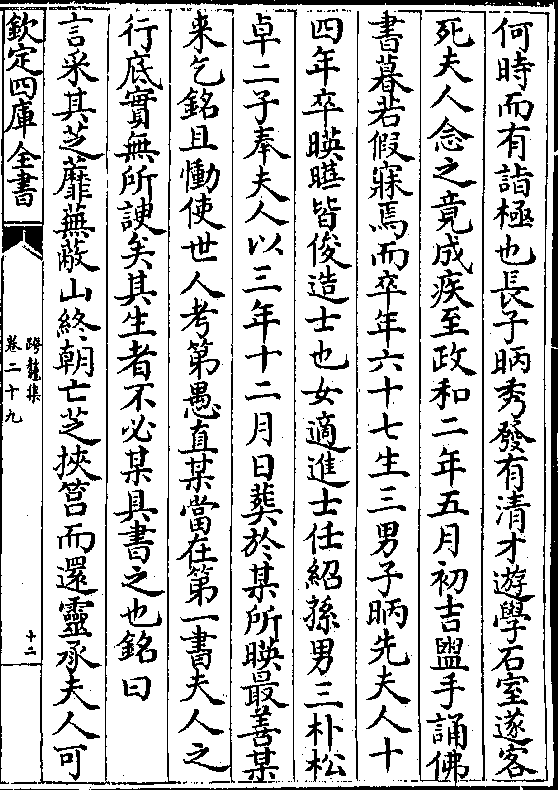 何時而有詣極也長子昞秀發有清才遊學石室遂客
死夫人念之竟成疾至政和二年五月初吉盥手誦佛
書暮若假寐焉而卒年六十七生三男子昞先夫人十
四年卒暎曣皆俊造士也女適進士任紹孫男三朴松
卓二子奉夫人以三年十二月日葬於某所暎最善某
来乞銘且慟使世人考第愚直某當在第一書夫人之
行底實無所諛矣其生者不必某具書之也銘曰
言采其芝蘼蕪蔽山終朝亡芝挾筥而還靈承夫人可
欽定四庫全書
跨鼇集
卷二十九
十二